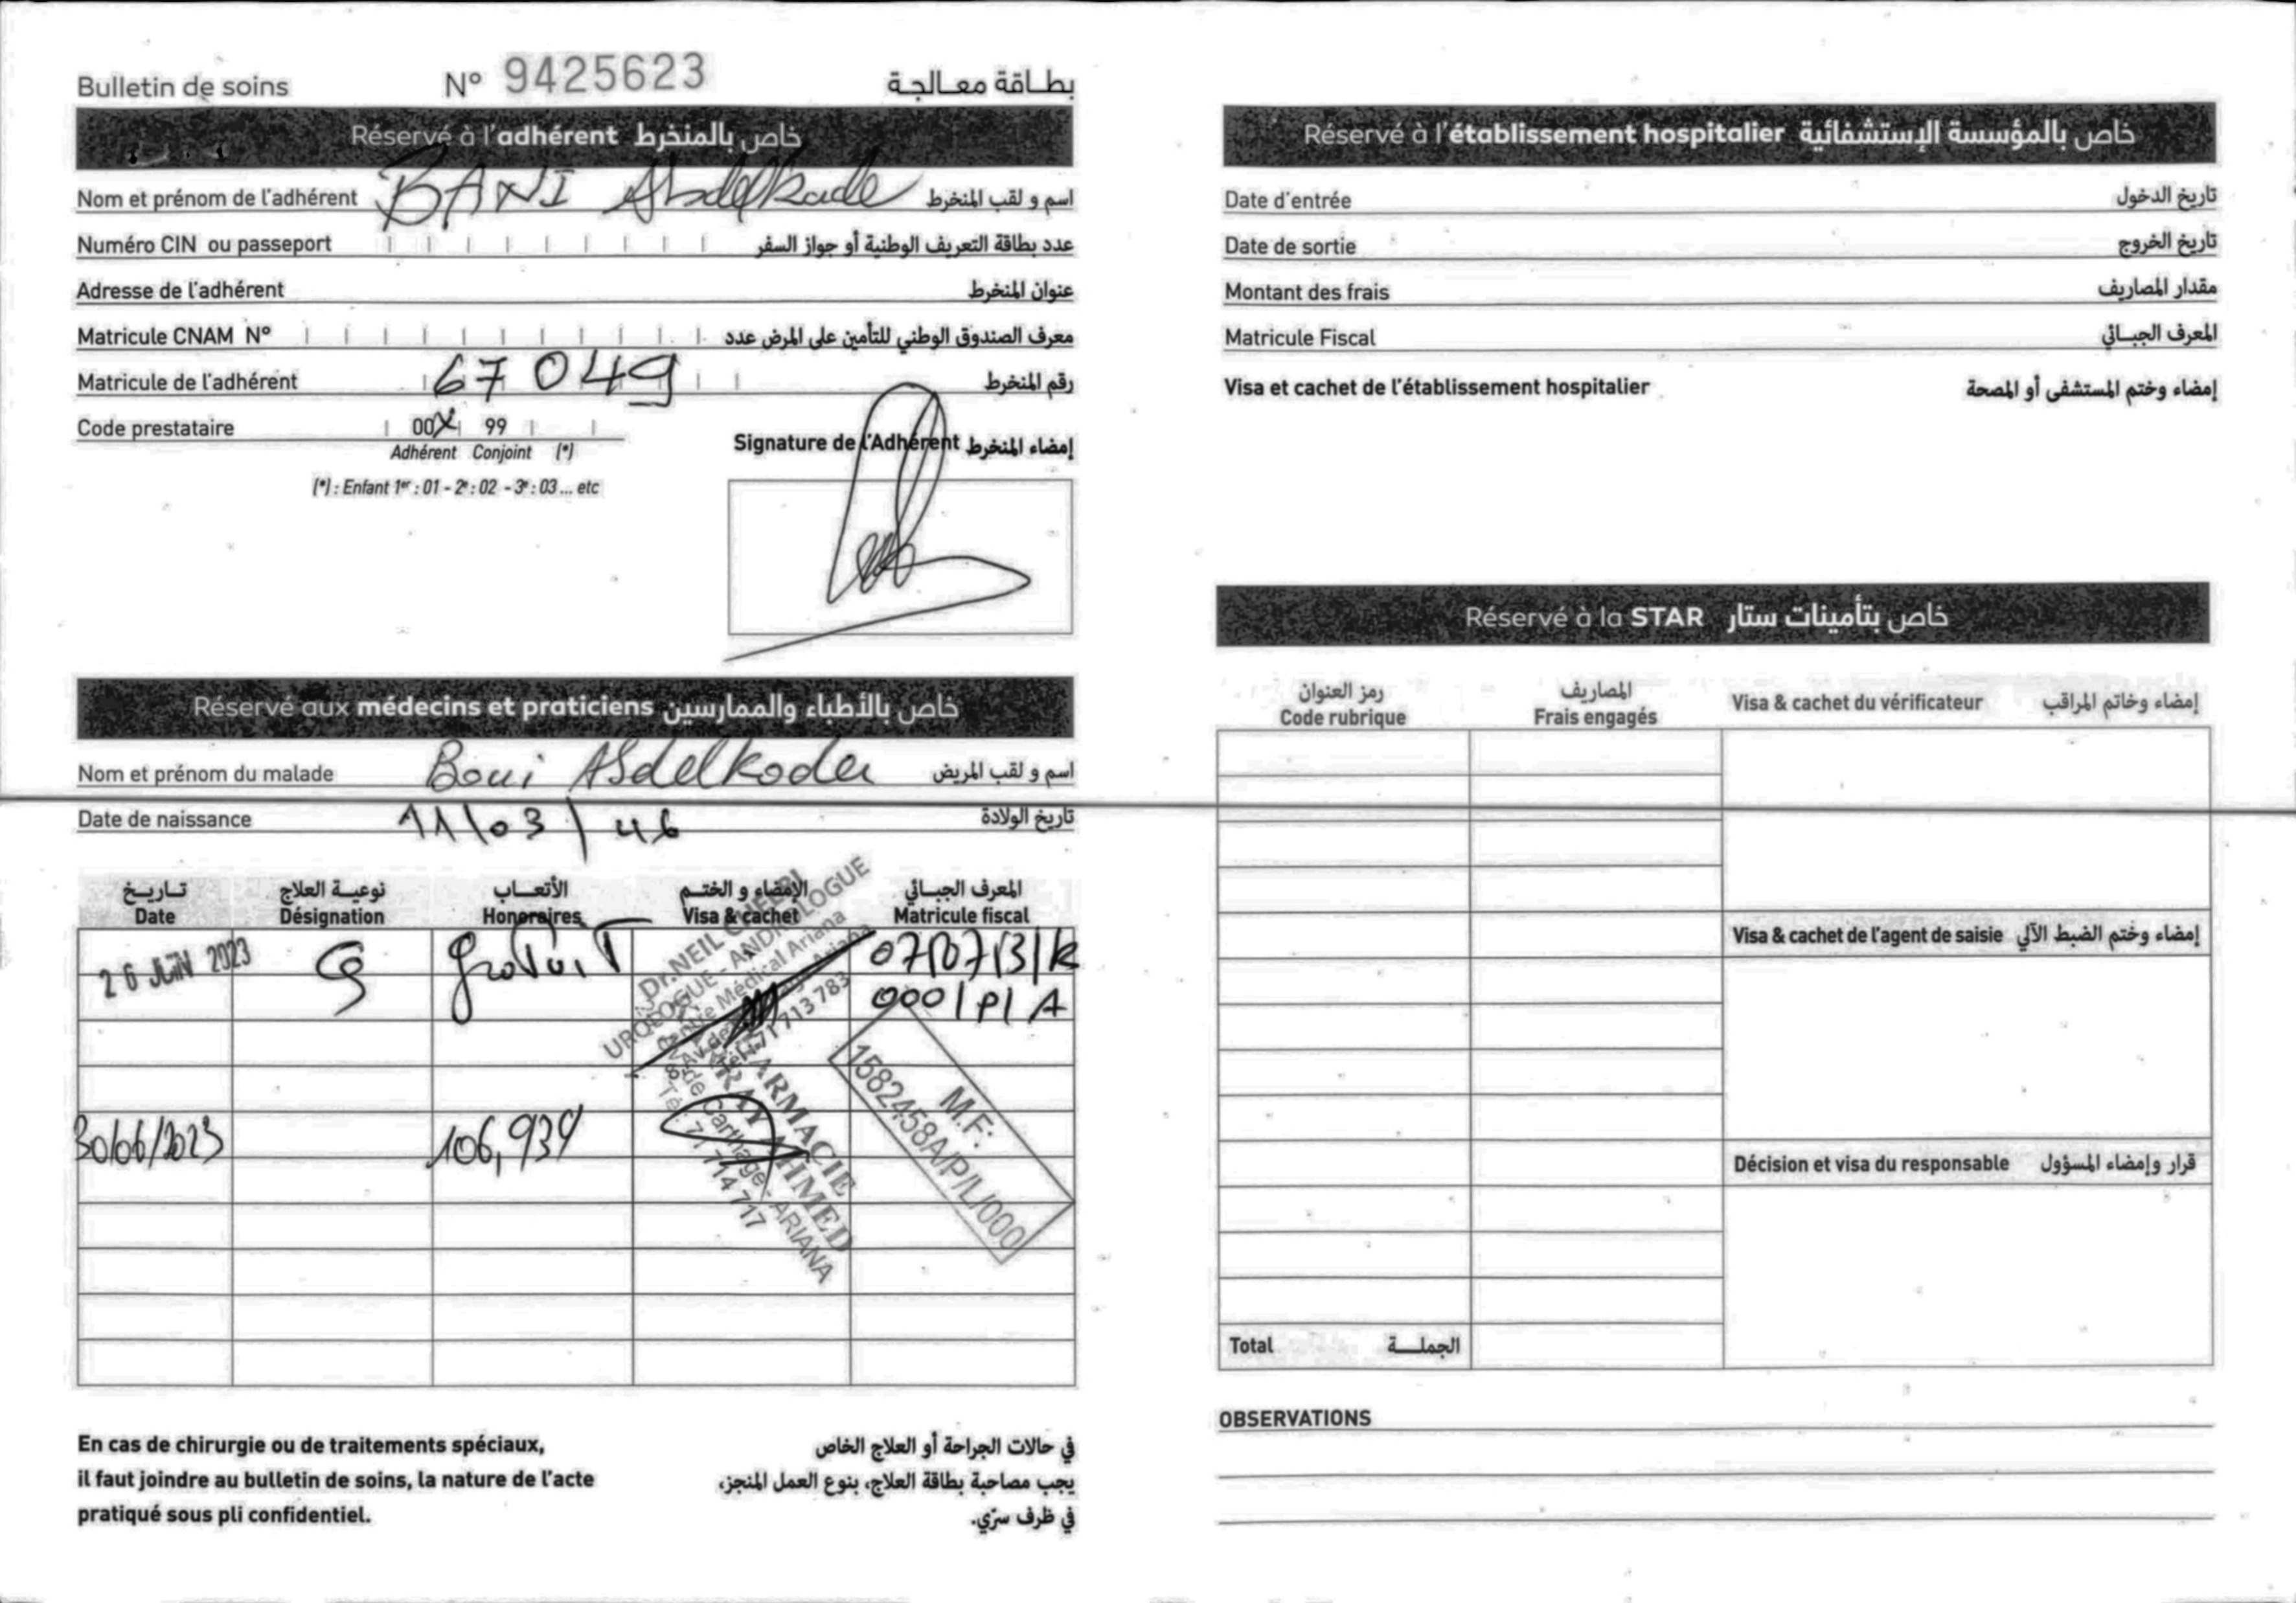 Bulletin de soins N° 9425623 بطاقة معالجة
Réservé à l'adhérent خاص بالمنخرط
Nom et prénom de l'adhérent BANI Abdelkade اسم و لقب المنخرط
Numéro CIN ou passeport عدد بطاقة التعريف الوطنية أو جواز السفر
Adresse de l'adhérent عنوان المنخرط
Matricule CNAM N° معرف الصندوق الوطني للتأمين على المرض عدد
Matricule de l'adhérent 67049 رقم المنخرط
Code prestataire 00X 99
Adhérent Conjoint (*)
(*) : Enfant 1er : 01 - 2e : 02 - 3e : 03 ... etc
Signature de l'Adhérent إمضاء المنخرط
Réservé aux médecins et praticiens خاص بالأطباء والممارسين
Nom et prénom du malade Bani Abdelkader اسم و لقب المريض
Date de naissance 11/03/46 تاريخ الولادة
تـاريـخ نوعيـة العلاج الأتعـاب الإمضاء و الختـم المعرف الجبـائي
Date Désignation Honoraires Visa & cachet Matricule fiscal
26 JUIN 2023 gratuit 0707131K
000/P/A
Dr.NEIL CHEBBI
UROLOGUE - ANDROLOGUE
Centre Médical Ariana
71 713 783
30/06/2023 106,939
PHARMACIE
AHMED
de Carthage - ARIANA
Tél: 71 714 717
M.F:
1582458A/P/L/000
En cas de chirurgie ou de traitements spéciaux,
il faut joindre au bulletin de soins, la nature de l'acte
pratiqué sous pli confidentiel.
في حالات الجراحة أو العلاج الخاص
يجب مصاحبة بطاقة العلاج، بنوع العمل المنجز،
في ظرف سرّي.
Réservé à l'établissement hospitalier خاص بالمؤسسة الإستشفائية
Date d'entrée تاريخ الدخول
Date de sortie تاريخ الخروج
Montant des frais مقدار المصاريف
Matricule Fiscal المعرف الجبـائي
Visa et cachet de l'établissement hospitalier إمضاء وختم المستشفى أو المصحة
Réservé à la STAR خاص بتأمينات ستار
رمز العنوان المصاريف
Code rubrique Frais engagés Visa & cachet du vérificateur إمضاء وخاتم المراقب
Visa & cachet de l'agent de saisie إمضاء وختم الضبط الآلي
Décision et visa du responsable قرار وإمضاء المسؤول
Total الجملـــة
OBSERVATIONS